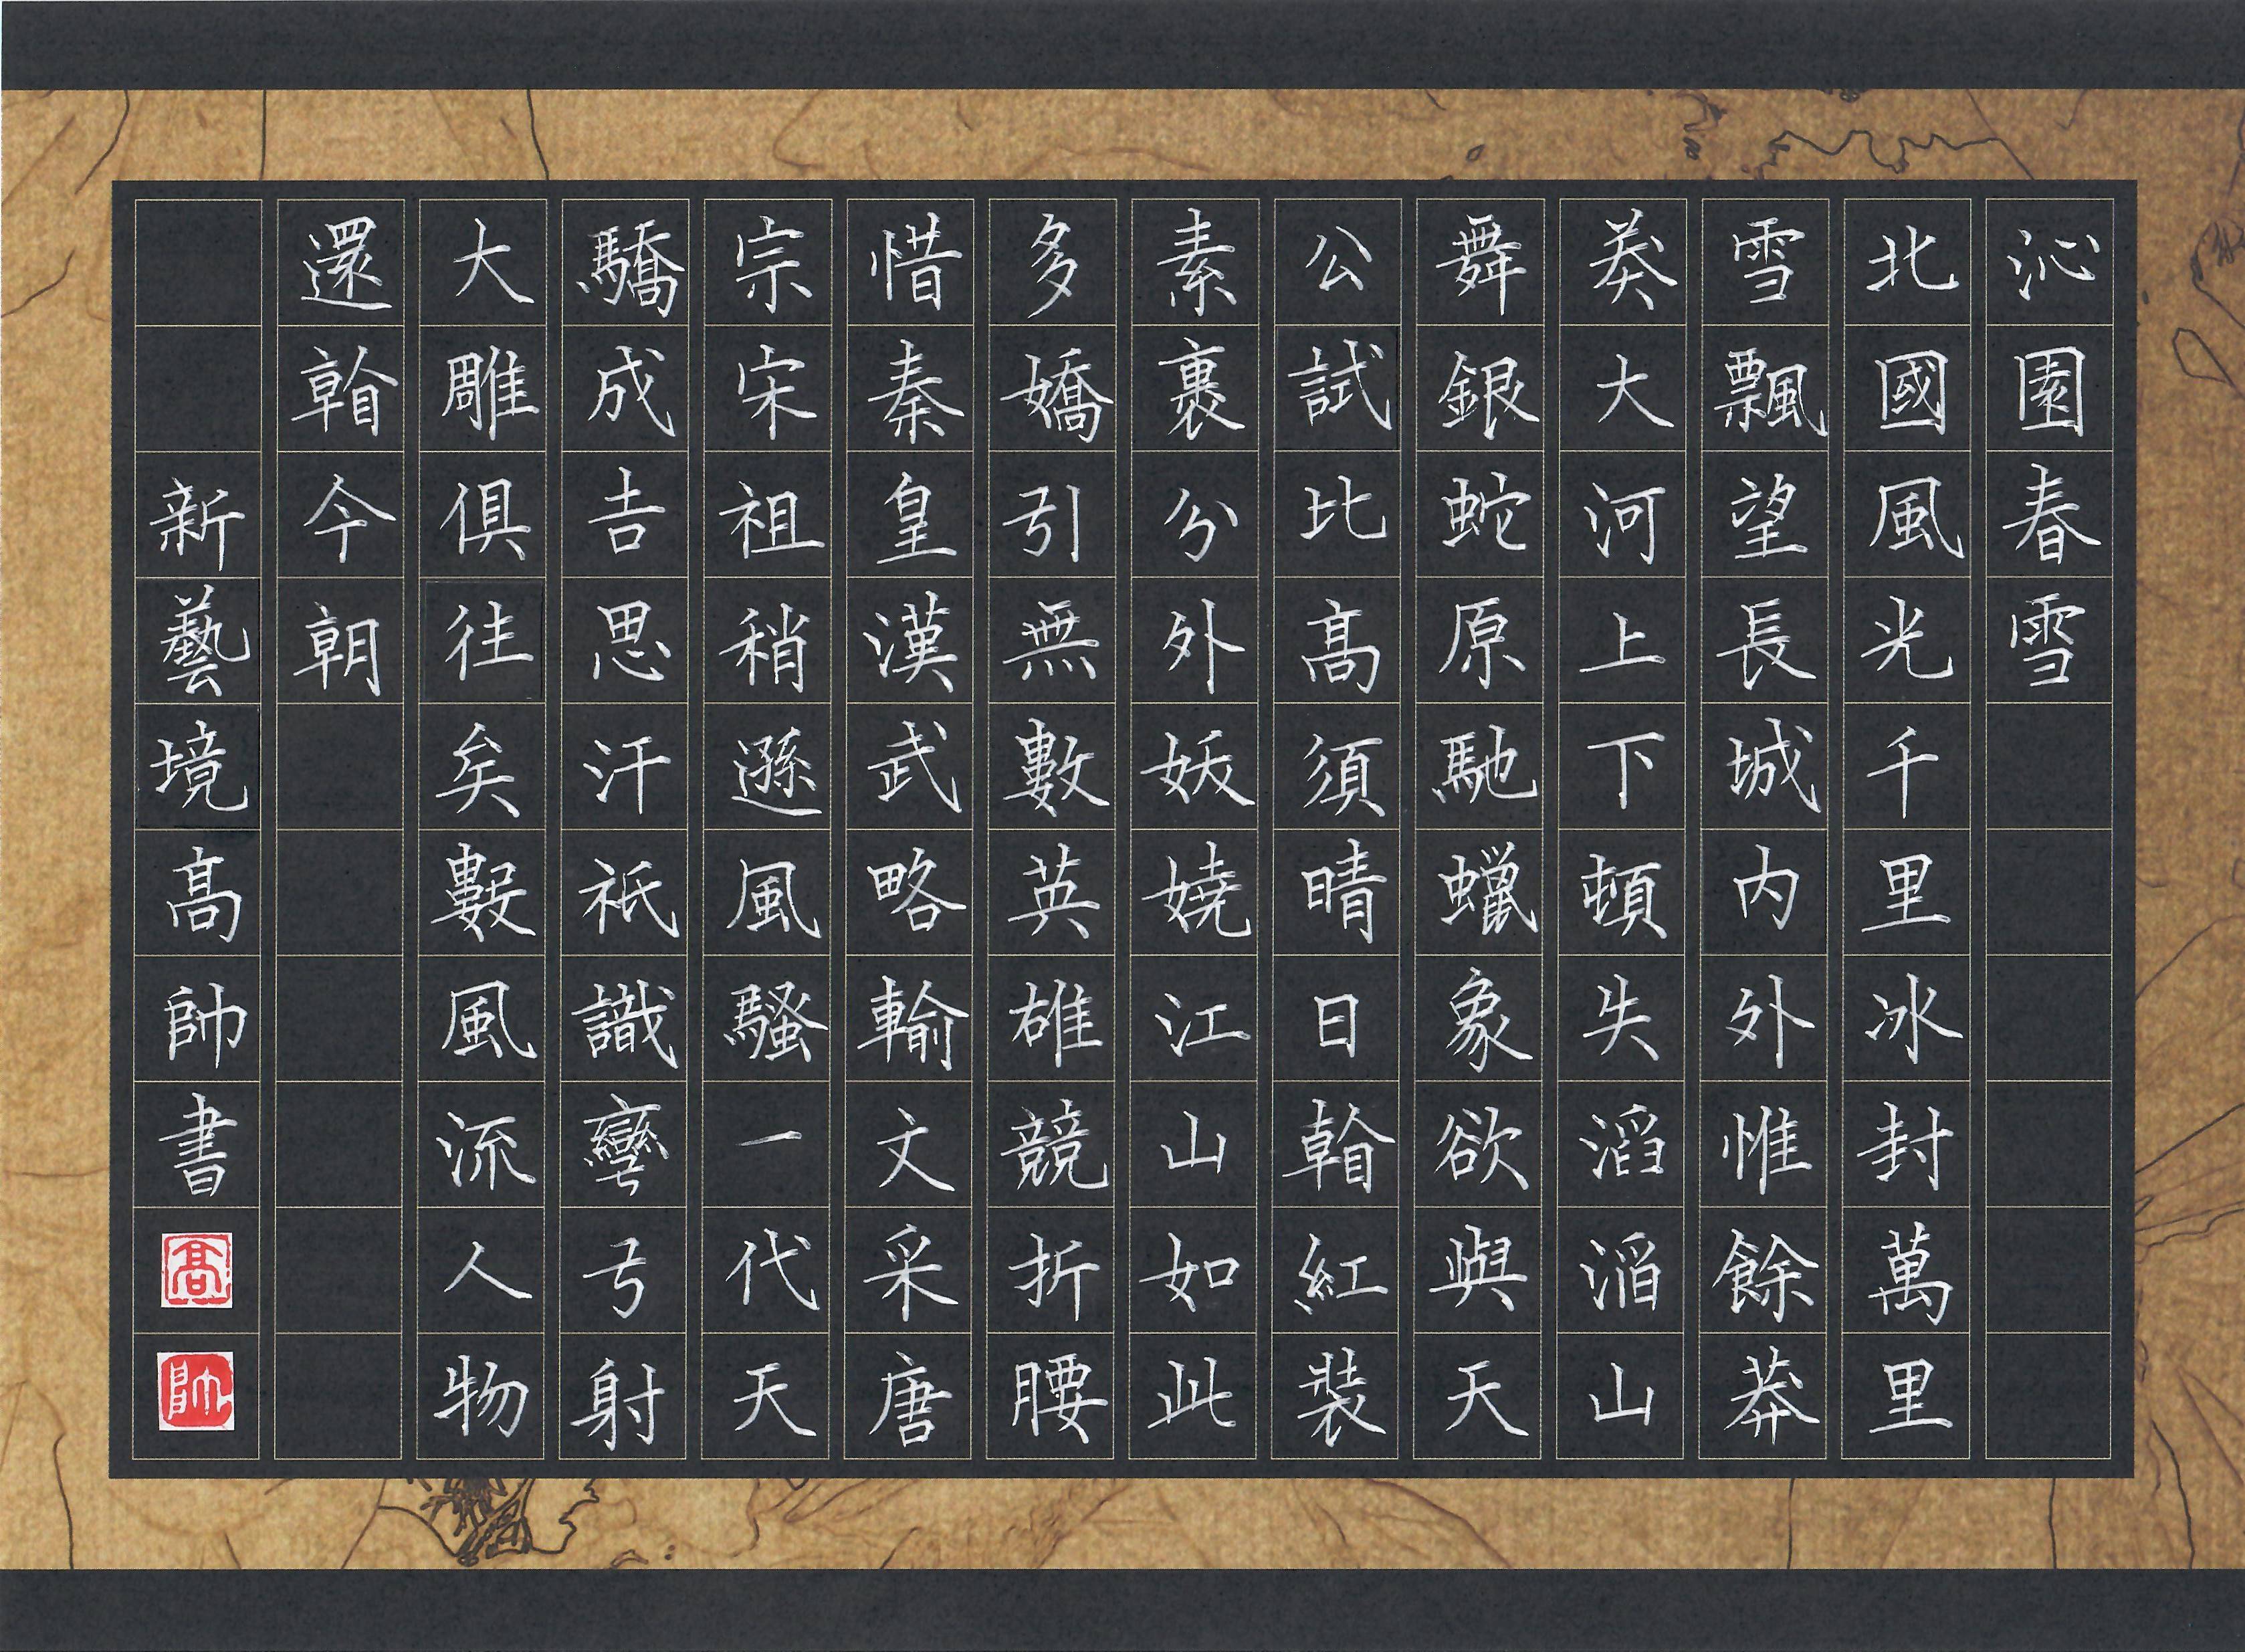 沁園春雪
北國風光千里冰封萬里
雪飄望長城内外惟餘莽
莽大河上下頓失滔滔山
舞銀蛇原馳蠟象欲與天
公試比髙須晴日看紅裝
素裹分外妖嬈江山如此
多嬌引無數英雄競折腰
惜秦皇漢武略輸文采唐
宗宋祖稍遜風騷一代天
驕成吉思汗祇識彎弓射
大雕俱往矣數風流人物
還看今朝
新藝境髙帥書
髙
帥